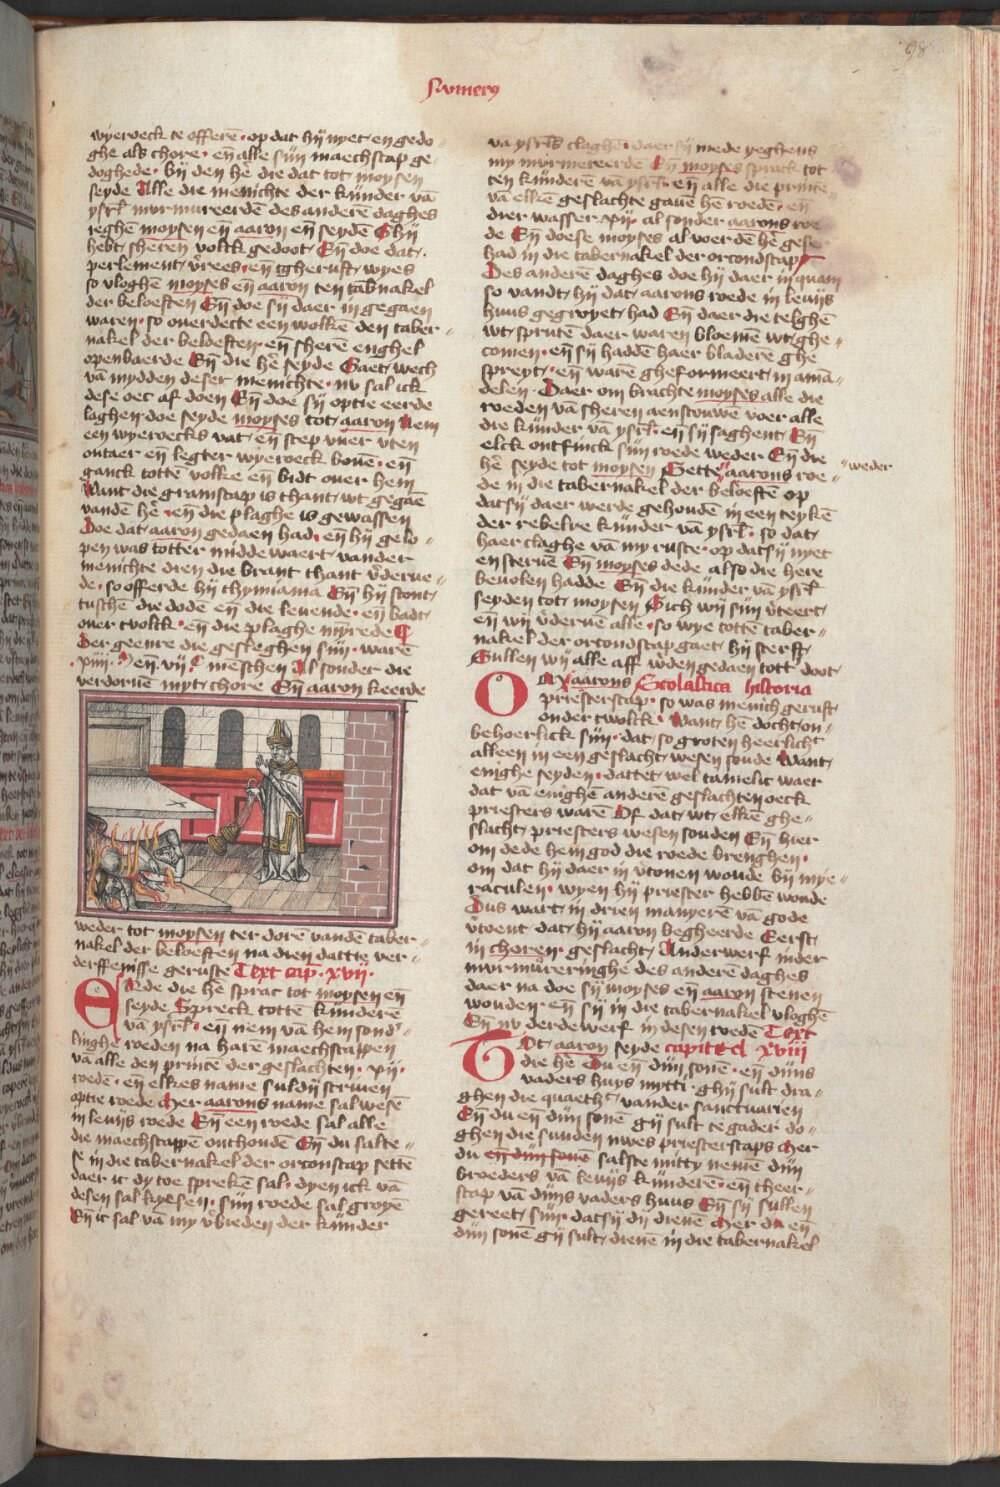 98
Numerus
wyeroeck te offerē · op dat hij nyet en gedo-
ghe als chore · eñ alle sijn maechscap ge-
doghede · bij den hē die dat tot moysen
seyde Alle die menichte der kijnder vā
ysrl̄ murmureerdē des anderē daghes
ieghē moysen eñ aaron eñ seydē Ghij
hebt sheren volck gedoot Eñ doe dat
perlement v̄rees eñ tgheruft wyes
so vloghē moyses eñ aaron ten tab̄nakel
der beloeften Eñ doe sij daer in gegaen
waren · so ouerdecte een wolkē den taber-
nakel der beloeften · eñ sherē enghel
openbaerde Eñ die hē seyde Gaet wech
vā mydden deser menichte · nv sal ick
dese oec af doen Eñ doe sij optie eerde
laghen doe seyde moyses tot aaron Nem
een wyeroecks vat eñ step vuer vten
outaer eñ legter wyeroeck bouē · eñ
ganck tottē volke eñ bidt ouer hem
Want die gramscap is thant wt gegaē
vandē hē · eñ die plaghe is gewassen
Doe dat aaron gedaen had · eñ hij gelo-
pen was totter midde waert vander
menichte dien die brant thant v̄derue-
de · so offerde hij thymiama Eñ hij stont
tuschē die dodē eñ die leuende · eñ badt
ouer tvolck · eñ die plaghe myrede
Der geenre die gesleghen sijn · warē
xiiij · M eñ · vij · C meschen Al sonder die
verdoruē myt chore Eñ aaron keerde
weder tot moysen ter dorē vandē taber-
nakel der beloeften na dien dattie ver-
derffenisse geruste Text cap̄ · xvij ·
Ende die hē sprac tot moysen eñ
seyde Spreck tottē kijnderē
vā ysrl̄ · eñ nem vā hem sond'-
linghe roeden na harē maechscappen
vā alle den princē der geslachten · xij ·
roedē · eñ elkes name suldij scriuen
optie roede Mer aarons name sal wesē
in leuijs roede Eñ een roede sal alle
die maechscappē onthoudē Eñ du salte-
se in die tabernakel der orconscap settē
daer ic dy toe sprekē sal · dyen ick vā
desen sal kyesen · sijn roede sal groyē
Eñ ic sal vā my v̄bieden der kijnder
vā ysrl̄s claghē · daer sij mede yeghens
my murmereerdē Eñ moyses sprack tot
ten kijnderē vā ysrl̄ · eñ alle die princē
vā elkē geslachte gauē hē roedē · eñ
dier wasser · xij · al sonder aarons roe-
de Eñ doese moyses al voerdē hē geset
had in die tabernakel der orcondscap
Des anderē daghes doe hij daer in quam
so vandt hij dat aarons roede in leuijs
huus gegroyet had Eñ daer die telghē
wt sprutē daer waren bloemē wt ghe-
comen · eñ sij haddē haer bladerē ghe
spreyt · eñ warē gheformeert in amā-
delen · Daer om brachte moyses alle die
roeden vā sheren aenscouwē voer alle
die kijnder vā ysrl̄ · eñ sij saghent Eñ
elck ontfinck sijn roede weder Eñ die
hē seyde tot moysen Sette aarons roe- weder
de in die tabernakel der beloeftē op
dat sij daer werde gehoudē in een teykē
der rebelre kijnder vā ysrl̄ · so dat
haer claghe vā my ruste · op dat sij nyet
en steruē Eñ moyses dede also die here
beuolen hadde Eñ die kijnder vā ysrl̄
seyden tot moysen Sich wij sijn v̄teert
eñ wij v̄deruē alle · so wye tottē taber-
nakel der orcondscap gaet hij sterft
Sullen wij alle aff w̄den gedaen tott doot
OM aarons Scolastica historia
priesterscap · so was menich geruft
onder tvolck · Want hē docht on-
behoerlick sijn · dat so groten heerlicht
alleen in een geslacht wesen soude Want
enighe seyden · dattet wel tamelic waer
dat vā enighē anderē geslachten oeck
priesters warē Of dat wt elkē ghe-
slacht priesters wesen souden Eñ hier
om dede hem god die roede brenghen ·
om dat hij daer in v̄tonen woude bij mye-
raculen · wyen hij priester hebbē woude
Dus wart in drien manyerē vā gode
v̄toent dat hij aaron begheerde Eerst
in choren geslacht Anderwerf in der
murmureringhe des anderē daghes
daer na doe sij moyses eñ aaron stenen
wouden · eñ sij in die tabernakel vloghē
Eñ nv derdewerf in desen roedē Text
Tot aaron seyde capittel xviij
die hē Du eñ dijn sonē · eñ dijns
vaders huys mytti · ghij sult dra-
ghen die quaetht vander sanctuarien
Eñ du eñ dijn sonē gij sult te gader do-
ghen die sunden uwes priesterscaps Mer
du eñ dijn sonē salste mitty nemē dijn
broeders vā leuijs kijnderē · eñ theer-
scap vā dijns vaders huus Eñ sij sullen
gereet sijn · dat sij dij dienē Mer du eñ
dijn sonē gij sult dienē in die tabernakel